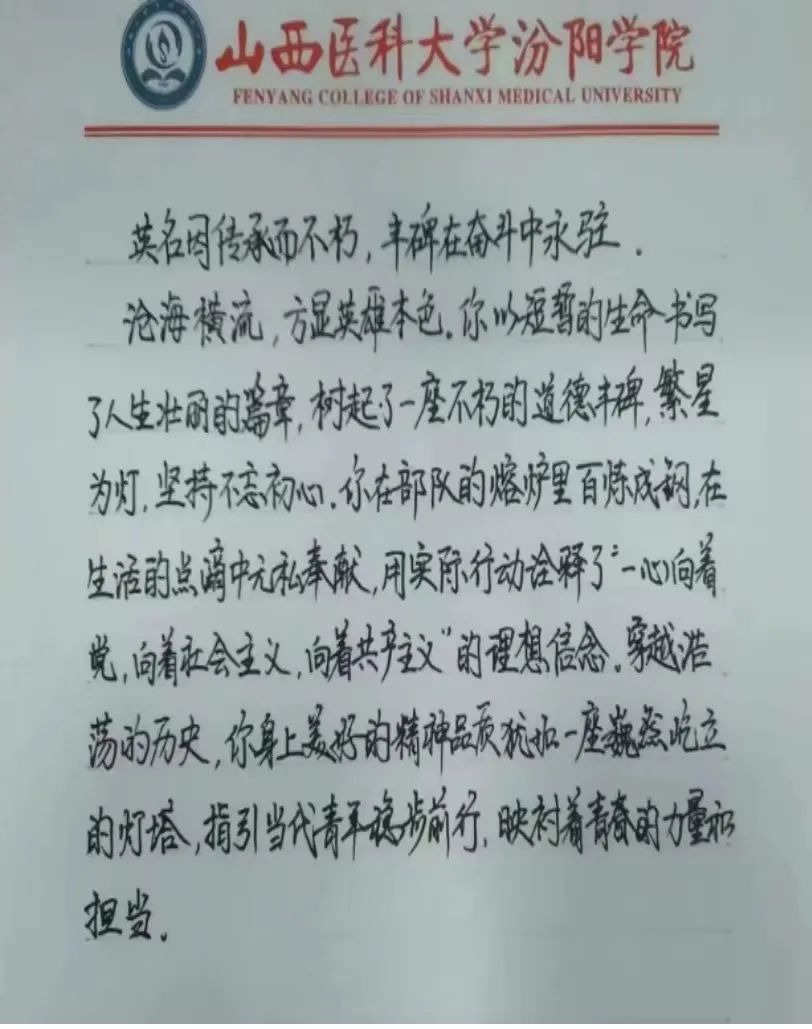 山西医科大学汾阳学院
FENYANG COLLEGE OF SHANXI MEDICAL UNIVERSITY
英名因传承而不朽，丰碑在奋斗中永驻．
沧海横流，方显英雄本色．你以短暂的生命书写
了人生壮丽的篇章，树起了一座不朽的道德丰碑，繁星
为灯，坚持不忘初心．你在部队的熔炉里百炼成钢，在
生活的点滴中无私奉献，用实际行动诠释了“一心向着
党，向着社会主义，向着共产主义”的理想信念．穿越浩
荡的历史，你身上美好的精神品质犹如一座巍然屹立
的灯塔，指引当代青年稳步前行，映衬着青春的力量和
担当．